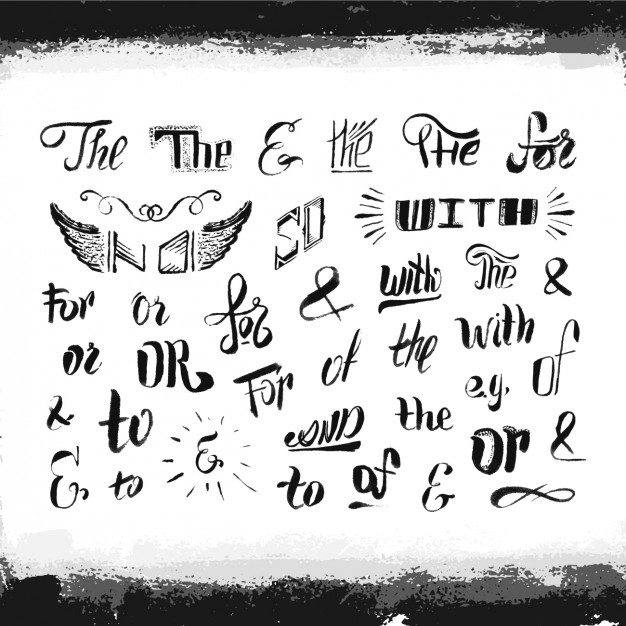 The The & the The for
NO SO WITH
For or for & with The &
or OR For of the with e.g. of
& to & AND the or &
& to to of &